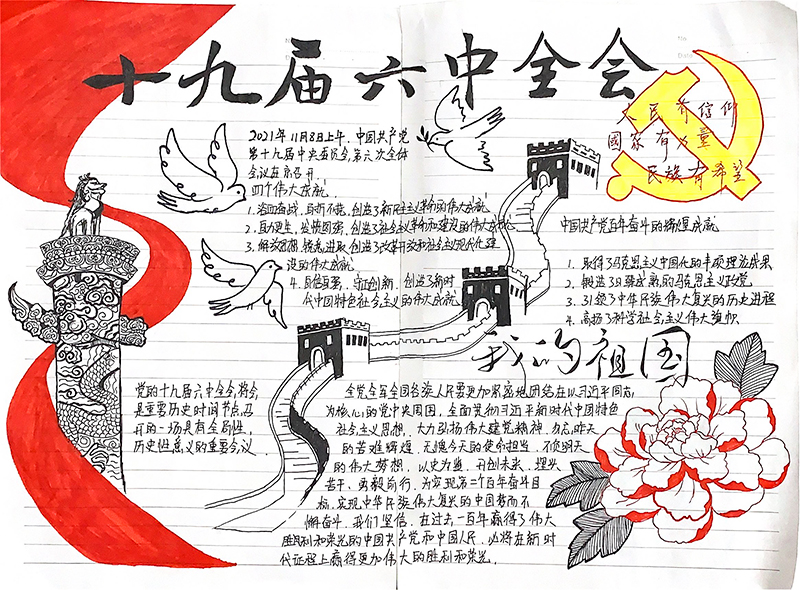 十九届六中全会
人民有信仰
國家有力量
民族有希望
2021年11月8日上午，中国共产党
第十九届中央委员会第六次全体
会议在京召开
四个伟大成就
1. 浴血奋战、百折不挠，创造了新民主主义革命的伟大成就
2. 自力更生、发愤图强，创造了社会主义革命和建设的伟大成就
3. 解放思想、锐意进取，创造了改革开放和社会主义现代化建
设的伟大成就
4. 自信自强、守正创新，创造了新时
代中国特色社会主义的伟大成就
中国共产党百年奋斗的辉煌成就
1. 取得了马克思主义中国化的丰硕理论成果
2. 锻造了日臻成熟的马克思主义政党
3. 引领了中华民族伟大复兴的历史进程
4. 高扬了科学社会主义伟大旗帜
我的祖国
党的十九届六中全会，将会
是重要历史时间节点召
开的一场具有全局性、
历史性意义的重要会议
全党全军全国各族人民要更加紧密地团结在以习近平同志
为核心的党中央周围，全面贯彻习近平新时代中国特色
社会主义思想，大力弘扬伟大建党精神，勿忘昨天
的苦难辉煌，无愧今天的使命担当，不负明天
的伟大梦想，以史为鉴，开创未来，埋头
苦干，勇毅前行，为实现第二个百年奋斗目
标，实现中华民族伟大复兴的中国梦而不
懈奋斗，我们坚信，在过去一百年赢得了伟大
胜利和荣光的中国共产党和中国人民，必将在新时
代征程上赢得更加伟大的胜利和荣光